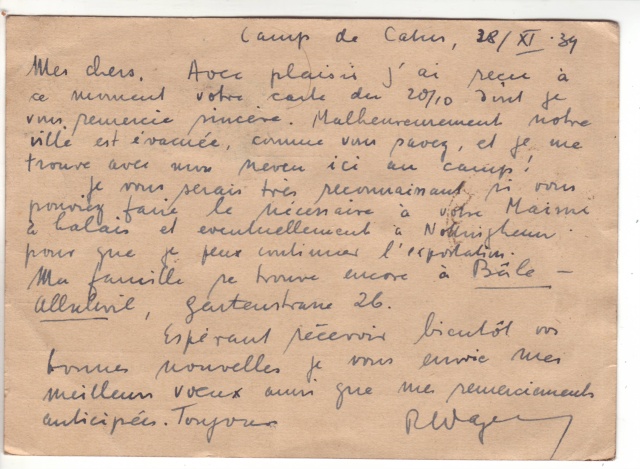 Camp de Catus, 28/XI.39
Mes chers. Avec plaisir j'ai reçu à
ce moment votre carte du 20/10 dont je
vous remercie sincère. Malheureusement notre
ville est évacuée, comme vous savez, et je me
trouve avec mon neveu ici au camp!
Je vous serais très reconnaissant si vous
pouviez faire le nécessaire à votre Maison
à Calais et eventuellement à Nottingham
pour que je peux continuer l'exportation.
Ma famille se trouve encore à Bâle -
Allschwil, Gartenstrasse 26.
Espérant recevoir bientôt vos
bonnes nouvelles je vous envoie mes
meilleurs voeux ainsi que mes remerciements
anticipés. Toujours